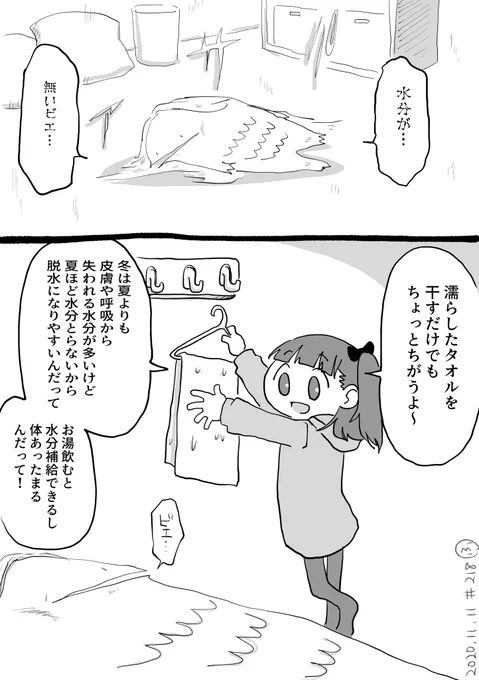 水分が…
無いビェ…
濡らしたタオルを
干すだけでも
ちょっとちがうよ～
冬は夏よりも
皮膚や呼吸から
失われる水分が多いけど
夏ほど水分とらないから
脱水になりやすいんだって
お湯飲むと
水分補給できるし
体あったまる
んだって！
ビェ…
2020.11.11 #218 ③